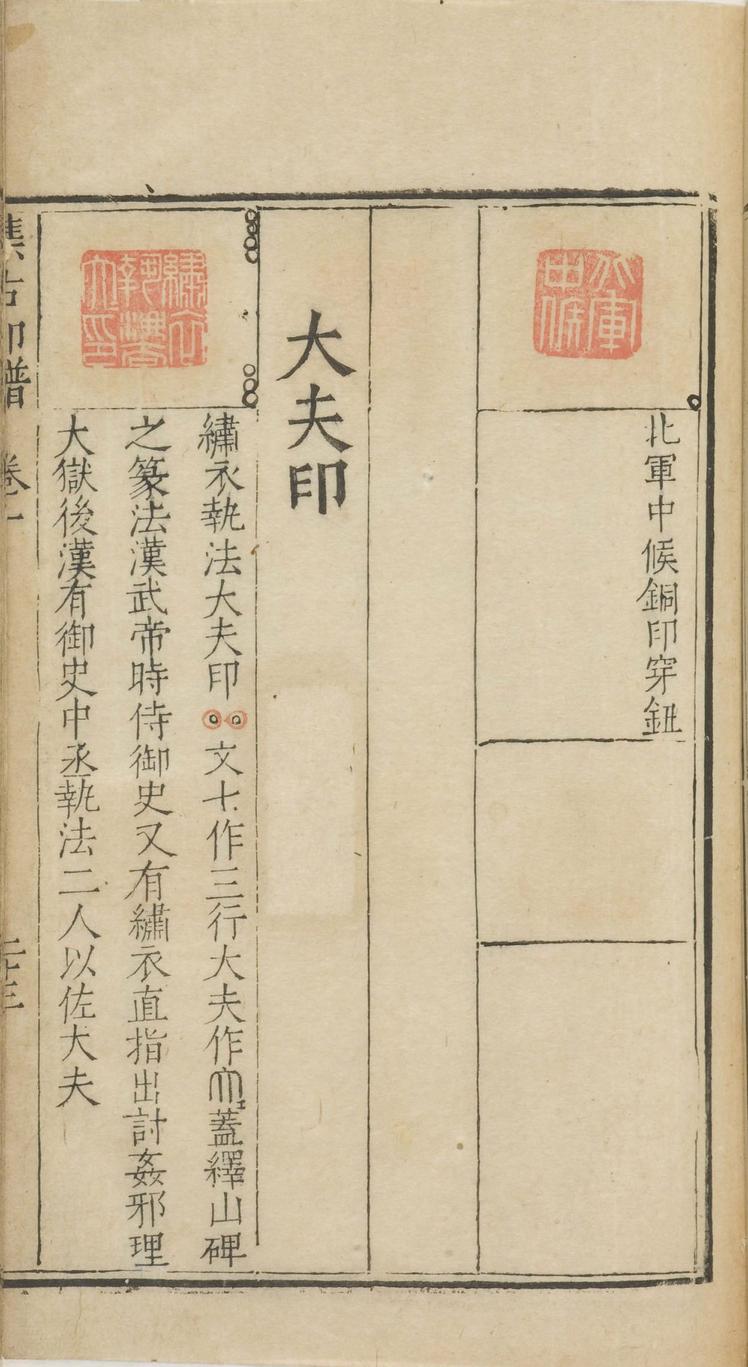 北軍中候
北軍中候銅印穿鈕
大夫印
繡衣執法大夫印
繡衣執法大夫印文七作三行大夫作夫₌蓋繹山碑
之篆法漢武帝時侍御史又有繡衣直指出討姦邪理
大獄後漢有御史中丞執法二人以佐大夫
集古印譜 卷一 二十三